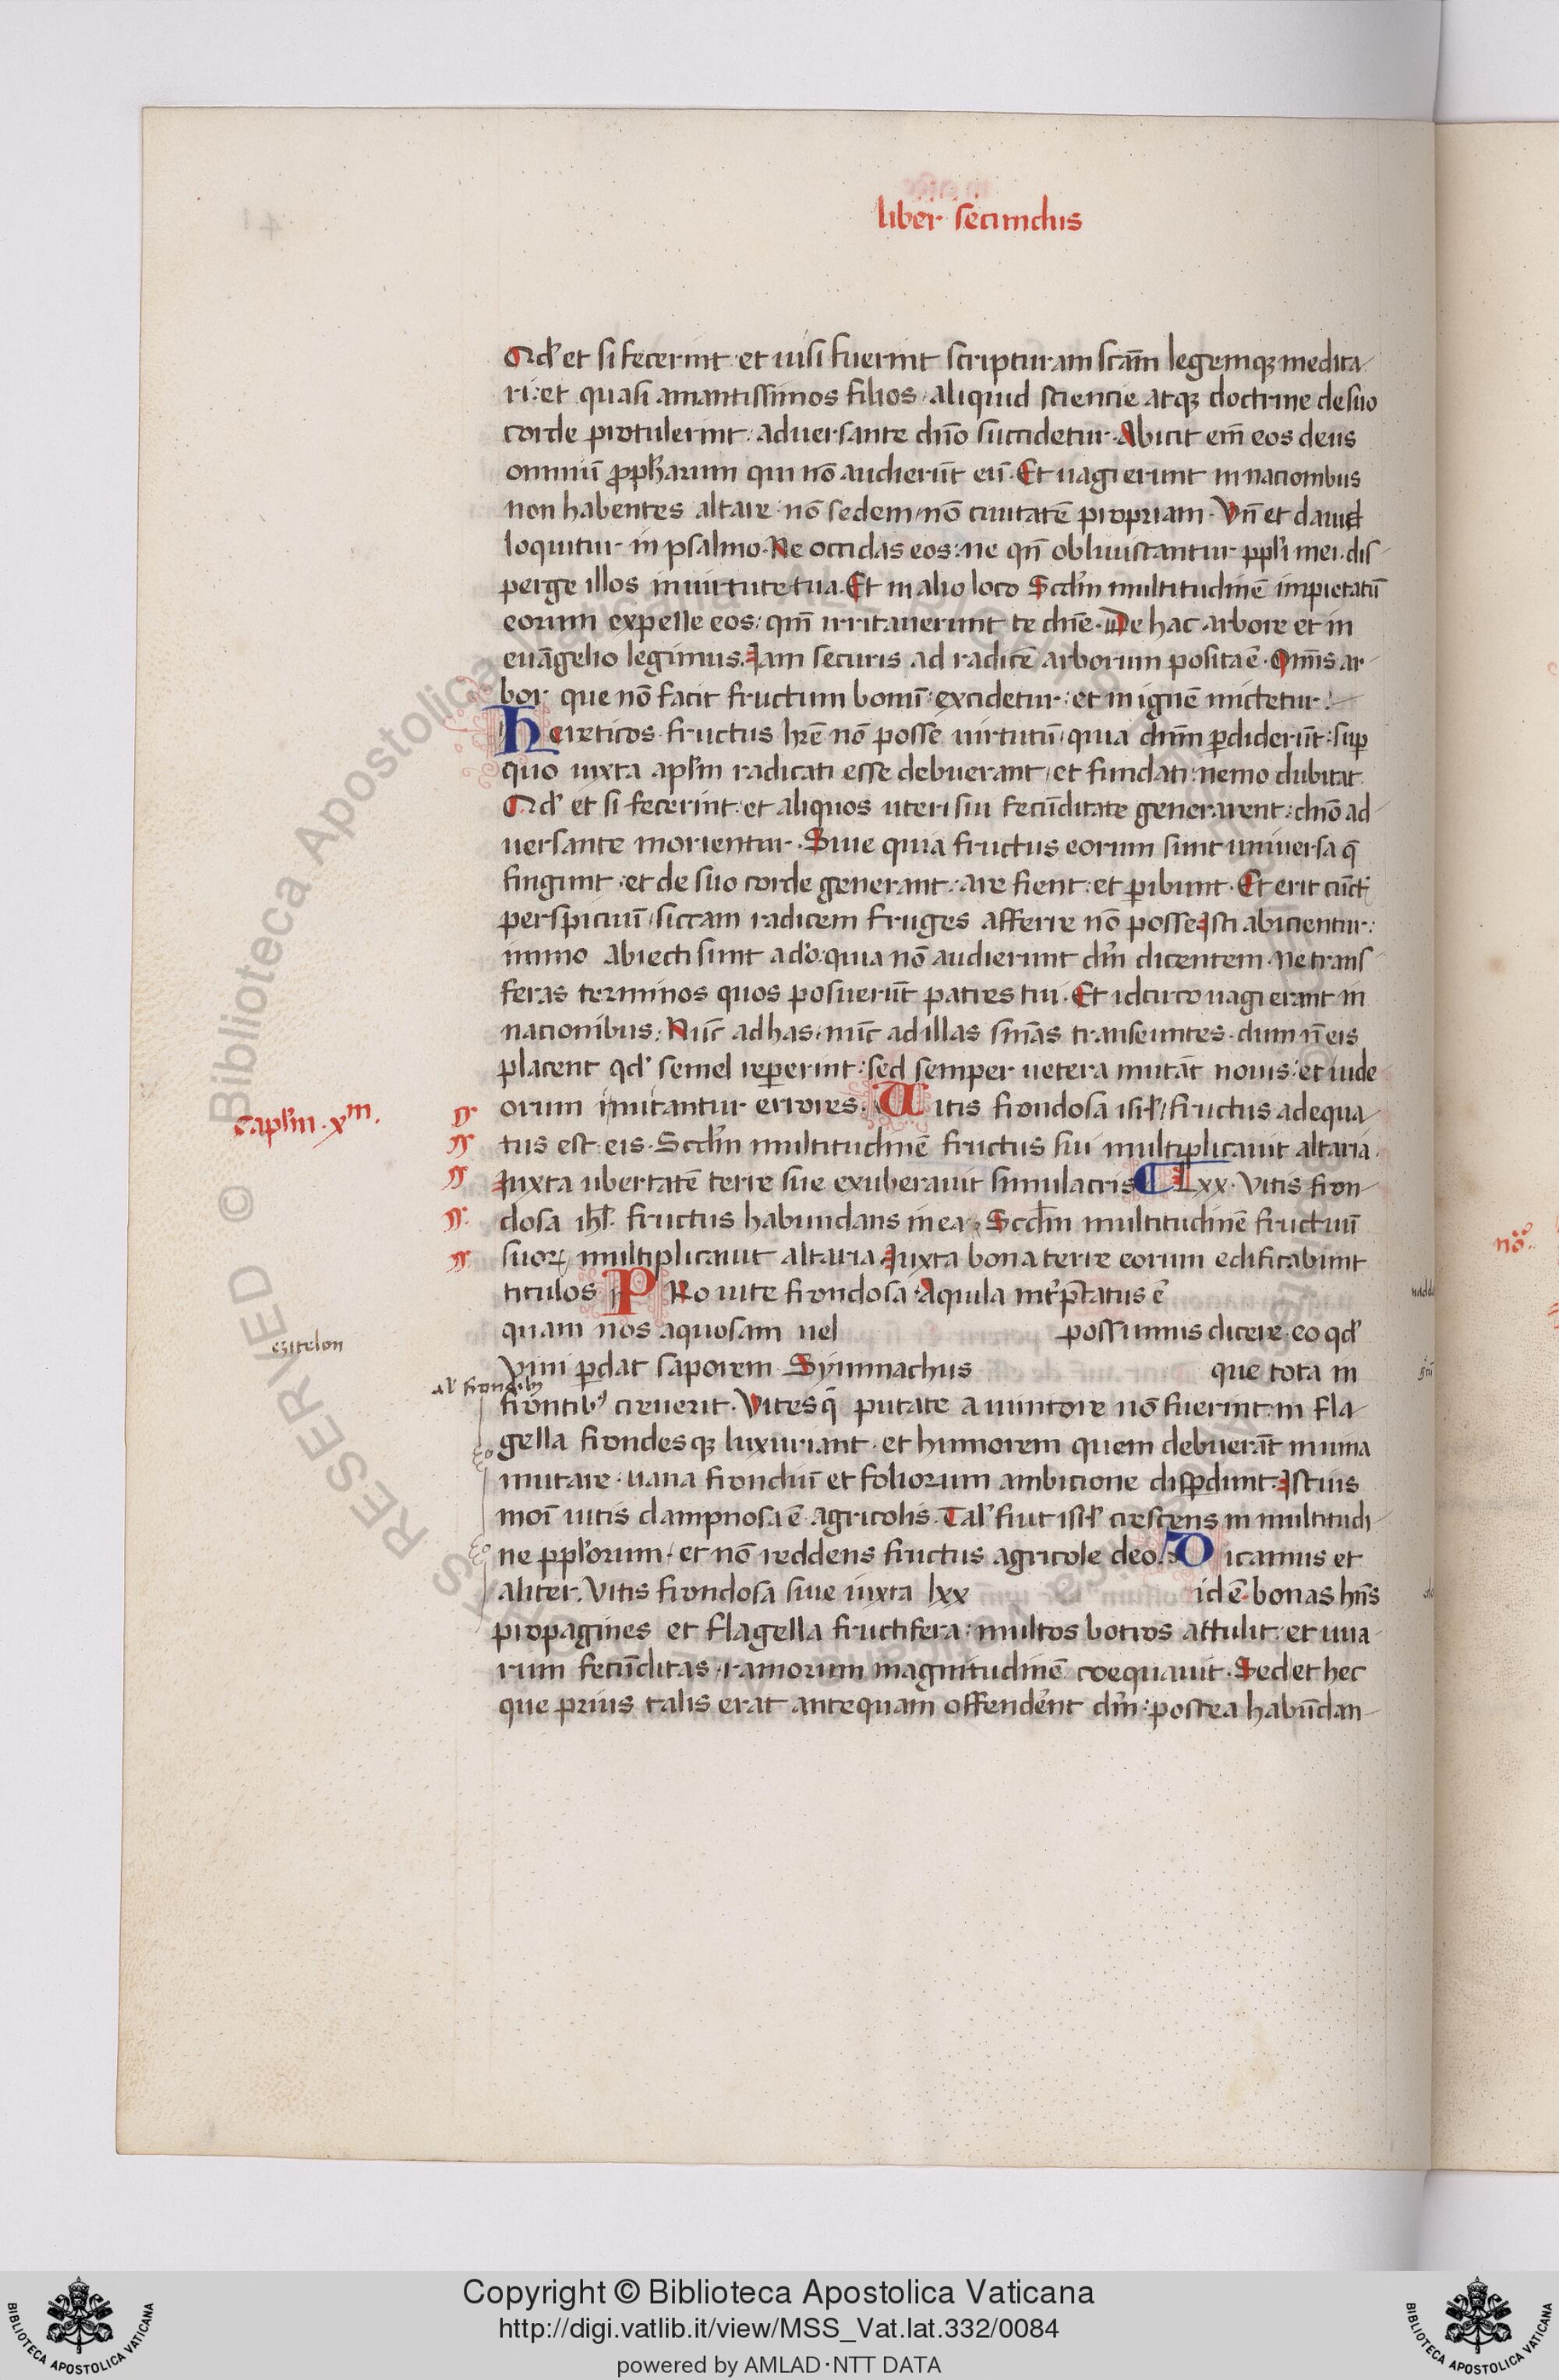 liber secundus
Qd' et si fecerint · et uisi fuerint scripturam scā̄m legemqꝫ medita
ri: et quasi amantissimos filios · aliquid sciencie atqꝫ doctrine de suo
corde protulerint: aduersante dn̄o succidetur. Abicit em̄ eos deus
omniū ꝓph̄arum qui nō audierūt eū. Et uagi erunt in nacionibus
non habentes altare · nō sedem · nō ciuitatē propriam. Vn̄ et dauid
loquitur in psalmo. Ne occidas eos: ne qn̄ obliuiscantur ppl'i mei. dis
perge illos in uirtute tua. Et in alio loco Scd'm multitudinē impietatū
eorum expelle eos: qm̄ irritauerunt te dn̄e. De hac arbore et in
euāgelio legimus. Jam securis ad radicē arborum posita ē. Om̄s ar
bor que nō facit fructum bonū: excidetur: et in ignē mictetur.
Hereticos fructus hr̄e nō posse uirtutū quia dn̄m ꝑdiderūt: suꝑ
quo iuxta apl'm radicati esse debuerant · et fundati: nemo dubitat.
Qd' et si fecerint: et aliquos uteri sui fecūditate generarent: dn̄o ad
uersante morientur. Siue quia fructus eorum sunt uniuersa q̄
fingunt · et de suo corde generant: are fient: et ꝑibunt. Et erit cūct'
perspicuū · siccam radicem fruges afferre nō posse Isti abicientur:
immo abiecti sunt a d'o: quia nō audierunt dn̄m dicentem. Ne trans
feras terminos quos posuerūt patres tui. Et idcirco uagi erant in
nacionibus. Nūc ad has · nūc ad illas sn̄ias transeuntes · dum n̄ eis
placent qd' semel reꝑerint: sed semper uetera mutāt nouis: et iude
orum imitantur errores. Uitis frondosa isr̄l' fructus adequa
Capl'm · xm.
tus est eis. Scd'm multitudinē fructus sui multiplicauit altaria.
Juxta ubertatē terre sue exuberauit simulacris Lxx. Vitis fron
dosa ihl'. fructus habundans in ea. Scd'm multitudinē fructuū
suoꝝ multiplicauit altaria Juxta bona terre eorum edificabunt
titulos PRo uite frondosa · Aquila int'p̄tatus ē
quam nos aquosam uel possumus dicere · eo qd'
eꝫitelon
Vini ꝑdat saporem Symmachus que tota in
al' frondib'
frontib' creuerit. Vites q̄ putate a uinitore nō fuerint: in fla
gella frondesqꝫ luxuriant · et humorem quem debuerāt in uina
mutare · uana frondiū et foliorum ambicione disꝑdunt. Istius
moī uitis dampnosa ē agricolis. Tal' fuit isr̄l' crescens in multitudi
ne ppl'orum · et nō reddens fructus agricole deo. Dicamus et
aliter. Vitis frondosa siue iuxta lxx id ē bonas hn̄s
propagines et flagella fructifera: multos botros attulit: et uua
rum fecūditas · ramorum magnitudinē coequauit. Sed et hec
que prius talis erat antequam offend'ent dn̄m: postea habūdan
nō
Copyright © Biblioteca Apostolica Vaticana
http://digi.vatlib.it/view/MSS_Vat.lat.332/0084
powered by AMLAD·NTT DATA